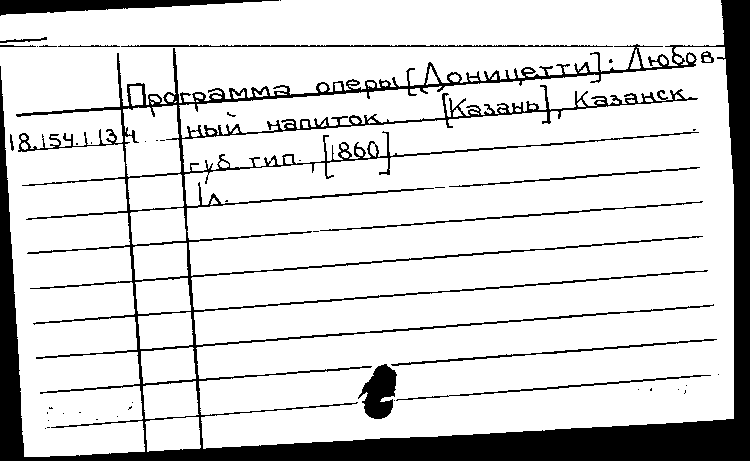 Программа оперы [Доницетти]: Любов-
18.154.1.134 ный напиток. [Казань], Казанск.
губ. тип., [1860].
1 л.